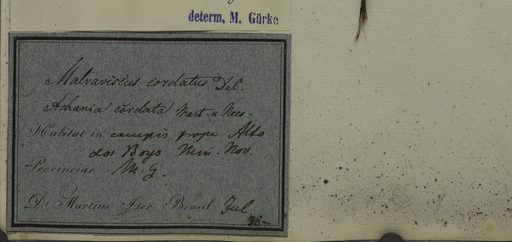 determ. M. Gürke
Malvaviscus cordatus DeC.
Achania cordata Mart. & Nees.
Habitat in campis prope Alto
dos Boys Min. Nov.
Provinciae M. G.
De Martius Iter Brasil Jul